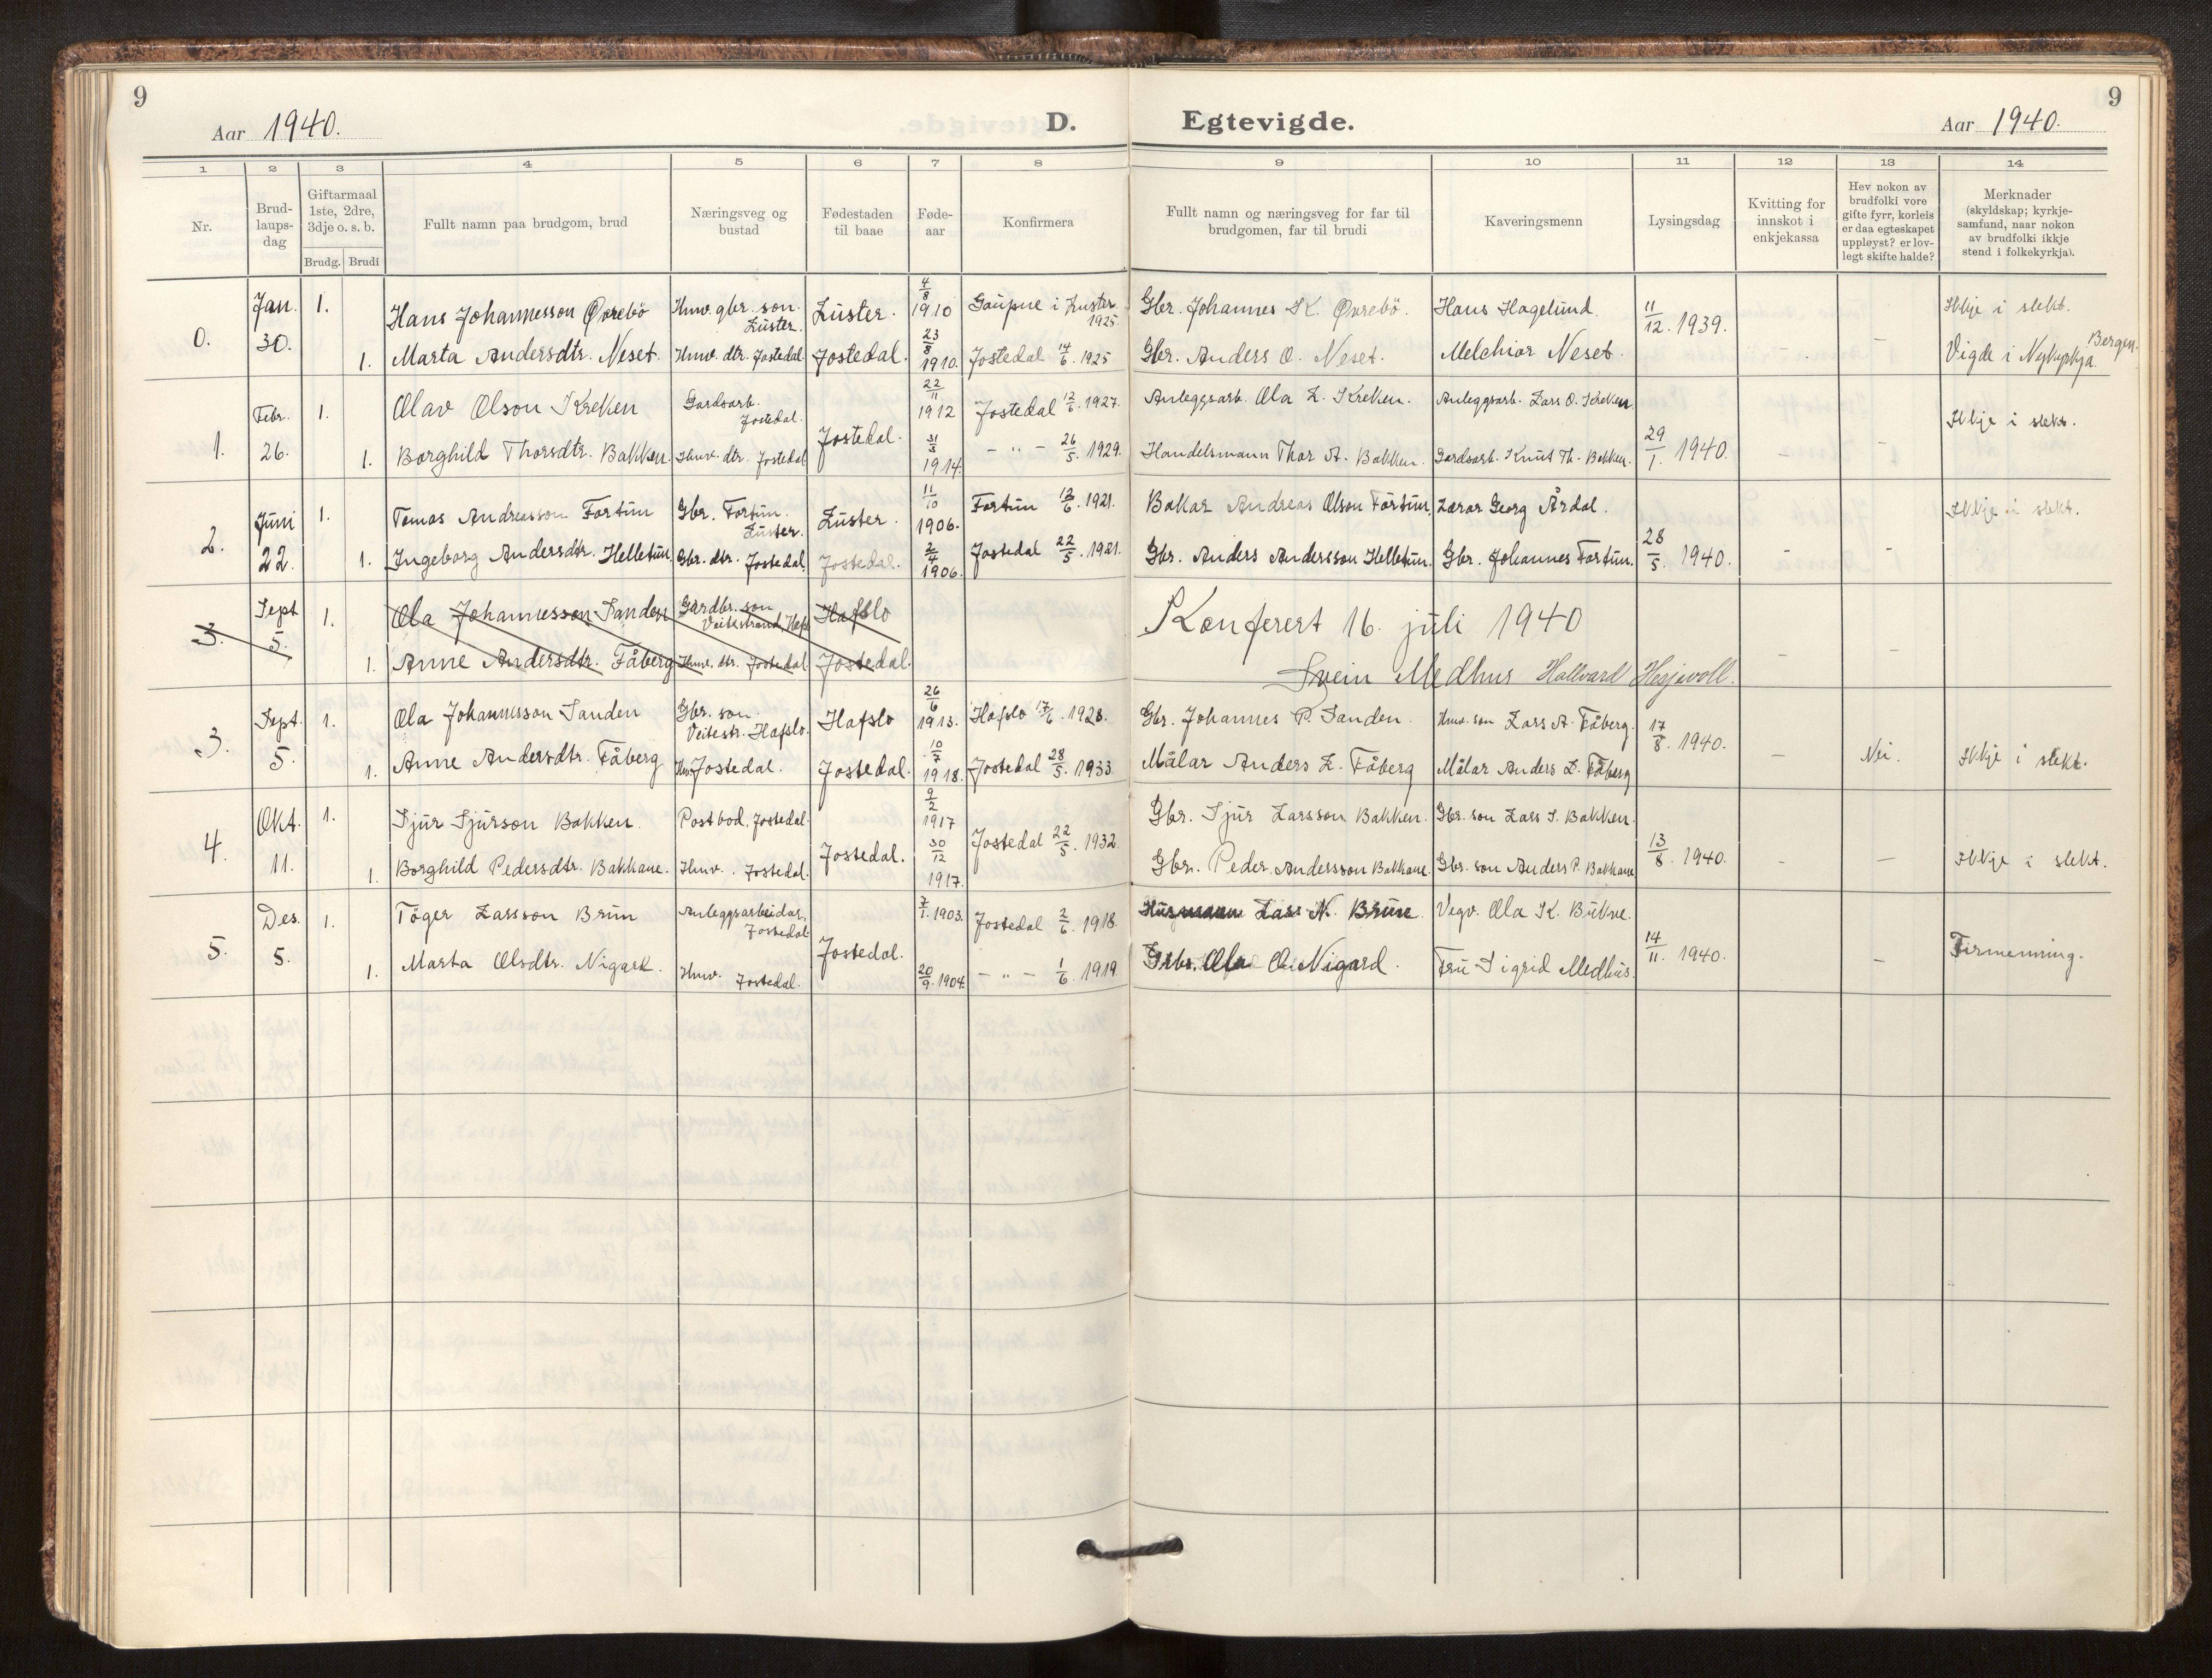 9
Aar 1940.
D. Egtevigde.
Aar 1940.
9
1 2 3 4 5 6 7 8 9 10 11 12 13 14
Nr.
Brud-
laups-
dag
Giftarmaal
1ste, 2dre,
3dje o. s. b.
Brudg. Brudi
Fullt namn paa brudgom, brud
Næringsveg og
bustad
Fødestaden
til baae
Føde-
aar
Konfirmera
Fullt namn og næringsveg for far til
brudgomen, far til brudi
Kaveringsmenn
Lysingsdag
Kvitting for
innskot i
enkjekassa
Hev nokon av
brudfolki vore
gifte fyrr, korleis
er daa egteskapet
uppløyst? er lov-
legt skifte halde?
Merknader
(skyldskap; kyrkje-
samfund, naar nokon
av brudfolki ikkje
stend i folkekyrkja).
0. Jan. 30. 1. Hans Johannesson Øvrebö Hmv. gbr. son. Luster. Luster. 4/8 1910 Gaupne i Luster 1925. Gbr. Johannes K. Øvrebö. Hans Hagelund. 11/12. 1939. Ikkje i slekt.
1. Marta Andersdtr. Neset. Hmv. dtr. Jostedal. Jostedal. 23/8 1910. Jostedal 14/6. 1925 Gbr. Anders O. Neset. Melchior Neset. - Vigde i Nykyrkja Bergen.
1. Febr. 26. 1. Olav Olson Kreken Gardsarb. Jostedal. Jostedal. 22/11 1912 Jostedal 12/6. 1927. Anleggsarb. Ola L. Kreken. Anleggsarb. Lars O. Kreken 29/1. 1940. - - Ikkje i slekt.
1. Borghild Thorsdtr. Bakken. Hmv. dtr. Jostedal 31/3 1914. - " - 26/5. 1929. Handelsmann Thor A. Bakken. Gardsarb. Knut Th. Bakken.
2. Juni 22. 1. Tomas Andreasson Fortun Gbr. Fortun. Luster. Luster. 11/10 1906. Fortun 12/6. 1921. Bakar Andreas Olson Fortun. Lærar Georg Årdal. 28/5. 1940. - - Ikkje i slekt.
1. Ingeborg Andersdtr. Helletun. Gbr. dtr. Jostedal. Jostedal. 2/4 1906. Jostedal 22/5. 1921. Gbr. Anders Andersson Helletun. Gbr. Johannes Fortun.
3. Sept 5. 1. Ola Johannesson Sanden Gardbr. son Veitestrand, Hafs. Hafslo
1. Anne Andersdtr. Fåberg Hmv. dtr. Jostedal Jostedal. - -
Konferert 16. juli 1940
Svein Medhus Hallvard Hesjevoll.
3. Sept. 5. 1. Ola Johannesson Sanden Gbr. son. Veitestr. Hafslo. Hafslo 26/6 1913. Hafslo 17/6. 1928. Gbr. Johannes P. Sanden. Hmv. son Lars A. Fåberg. 17/8. 1940. - Nei. Ikkje i slekt.
1. Anne Andersdtr. Fåberg Hmv Jostedal. Jostedal. 10/7 1918. Jostedal 28/5. 1933. Målar Anders L. Fåberg Målar Anders L. Fåberg
4. Okt. 11. 1. Sjur Sjurson Bakken. Postbod. Jostedal. Jostedal. 9/2 1917 Jostedal 22/5. 1932. Gbr. Sjur Larsson Bakken. Gbr. son Lars S. Bakken. 13/8. 1940. - - Ikkje i slekt.
1. Borghild Pedersdtr. Bakkane. Hmv. Jostedal. 30/12 1917. Gbr. Peder Andersson Bakkane. Gbr. son Anders P. Bakkane
5. Des. 5. 1. Töger Larsson Brun Anleggsarbeidar, Jostedal Jostedal. 7/1. 1903. Jostedal 2/6. 1918. Husmann Lars N. Brun Vegv. Ola K. Bukve. 14/11. 1940. - Tirmenning.
1. Marta Olsdtr. Nigard. Hmv. Jostedal. 20/9. 1904. - " - 1/6. 1919 Gbr. Ola O. Nigard. Fru Sigrid Medhus.